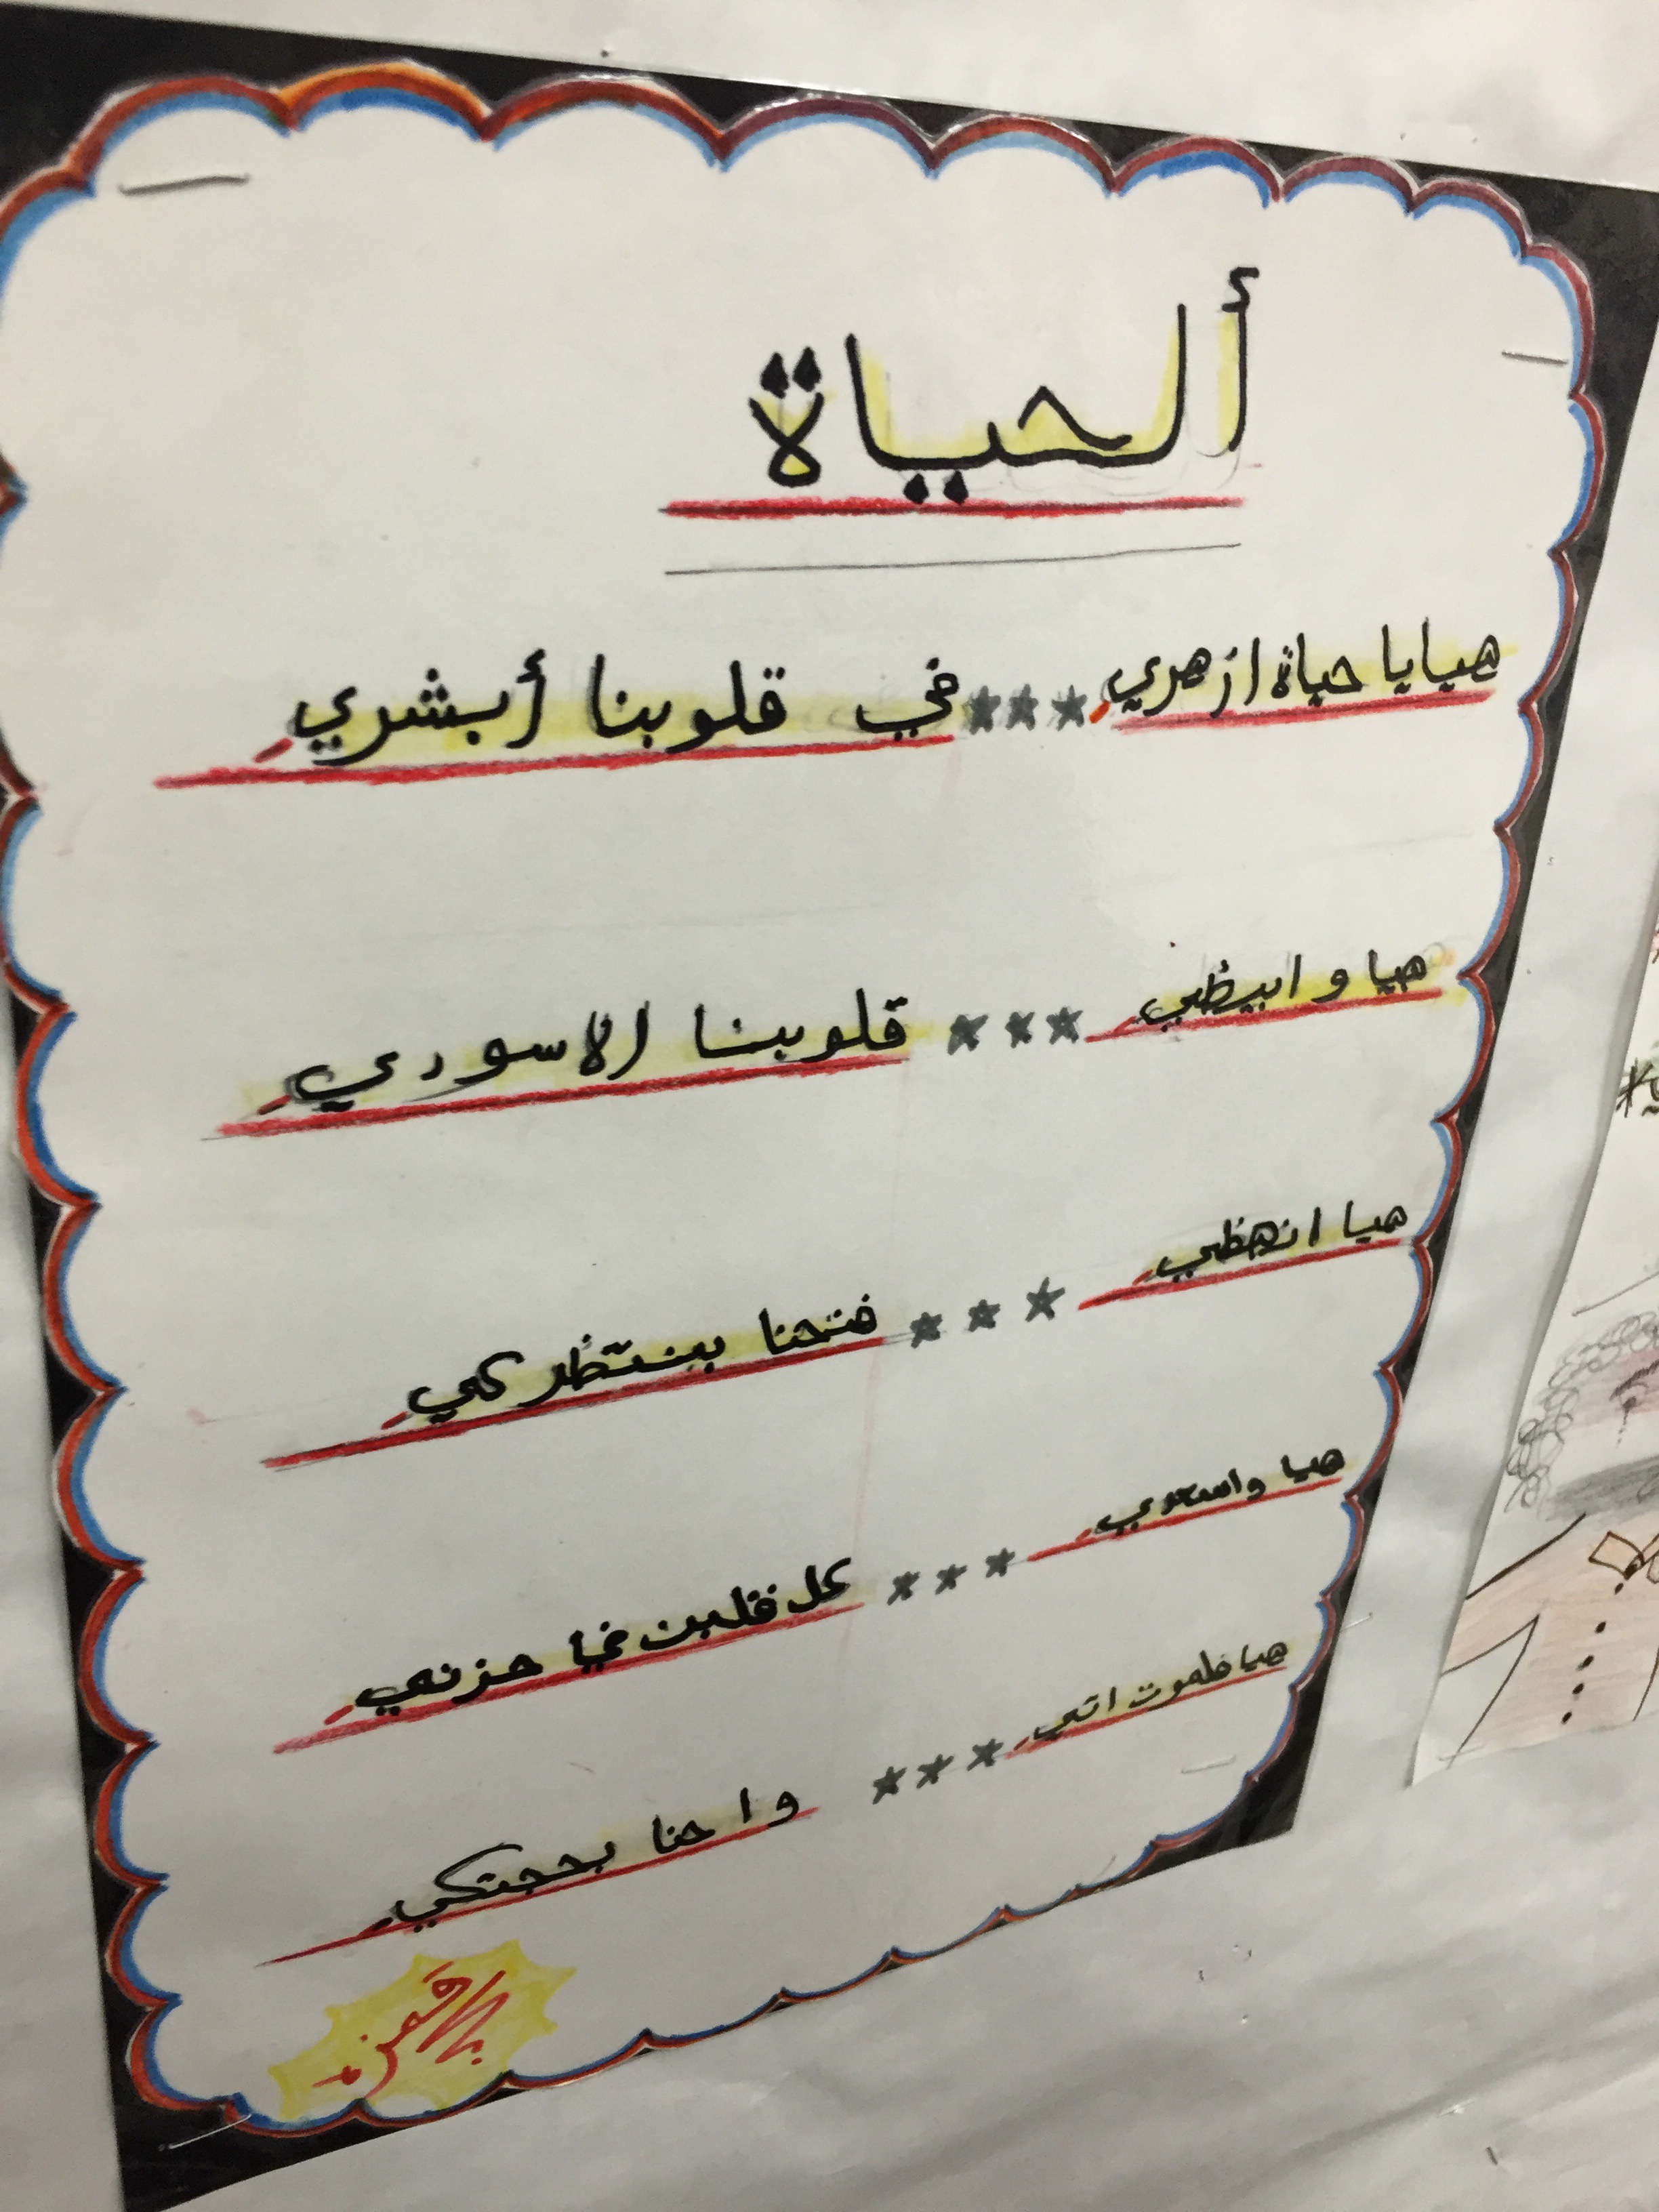 ألحياة
هيا يا حياة ازهري *** في قلوبنا أبشري
هيا و ابيظي *** قلوبنا الاسودي
هيا انهظي *** فنحنا بنتظركي
هيا واسعدي *** كل قلبن في حزني
هيا فلموت اتي *** و احنا بحجتكي